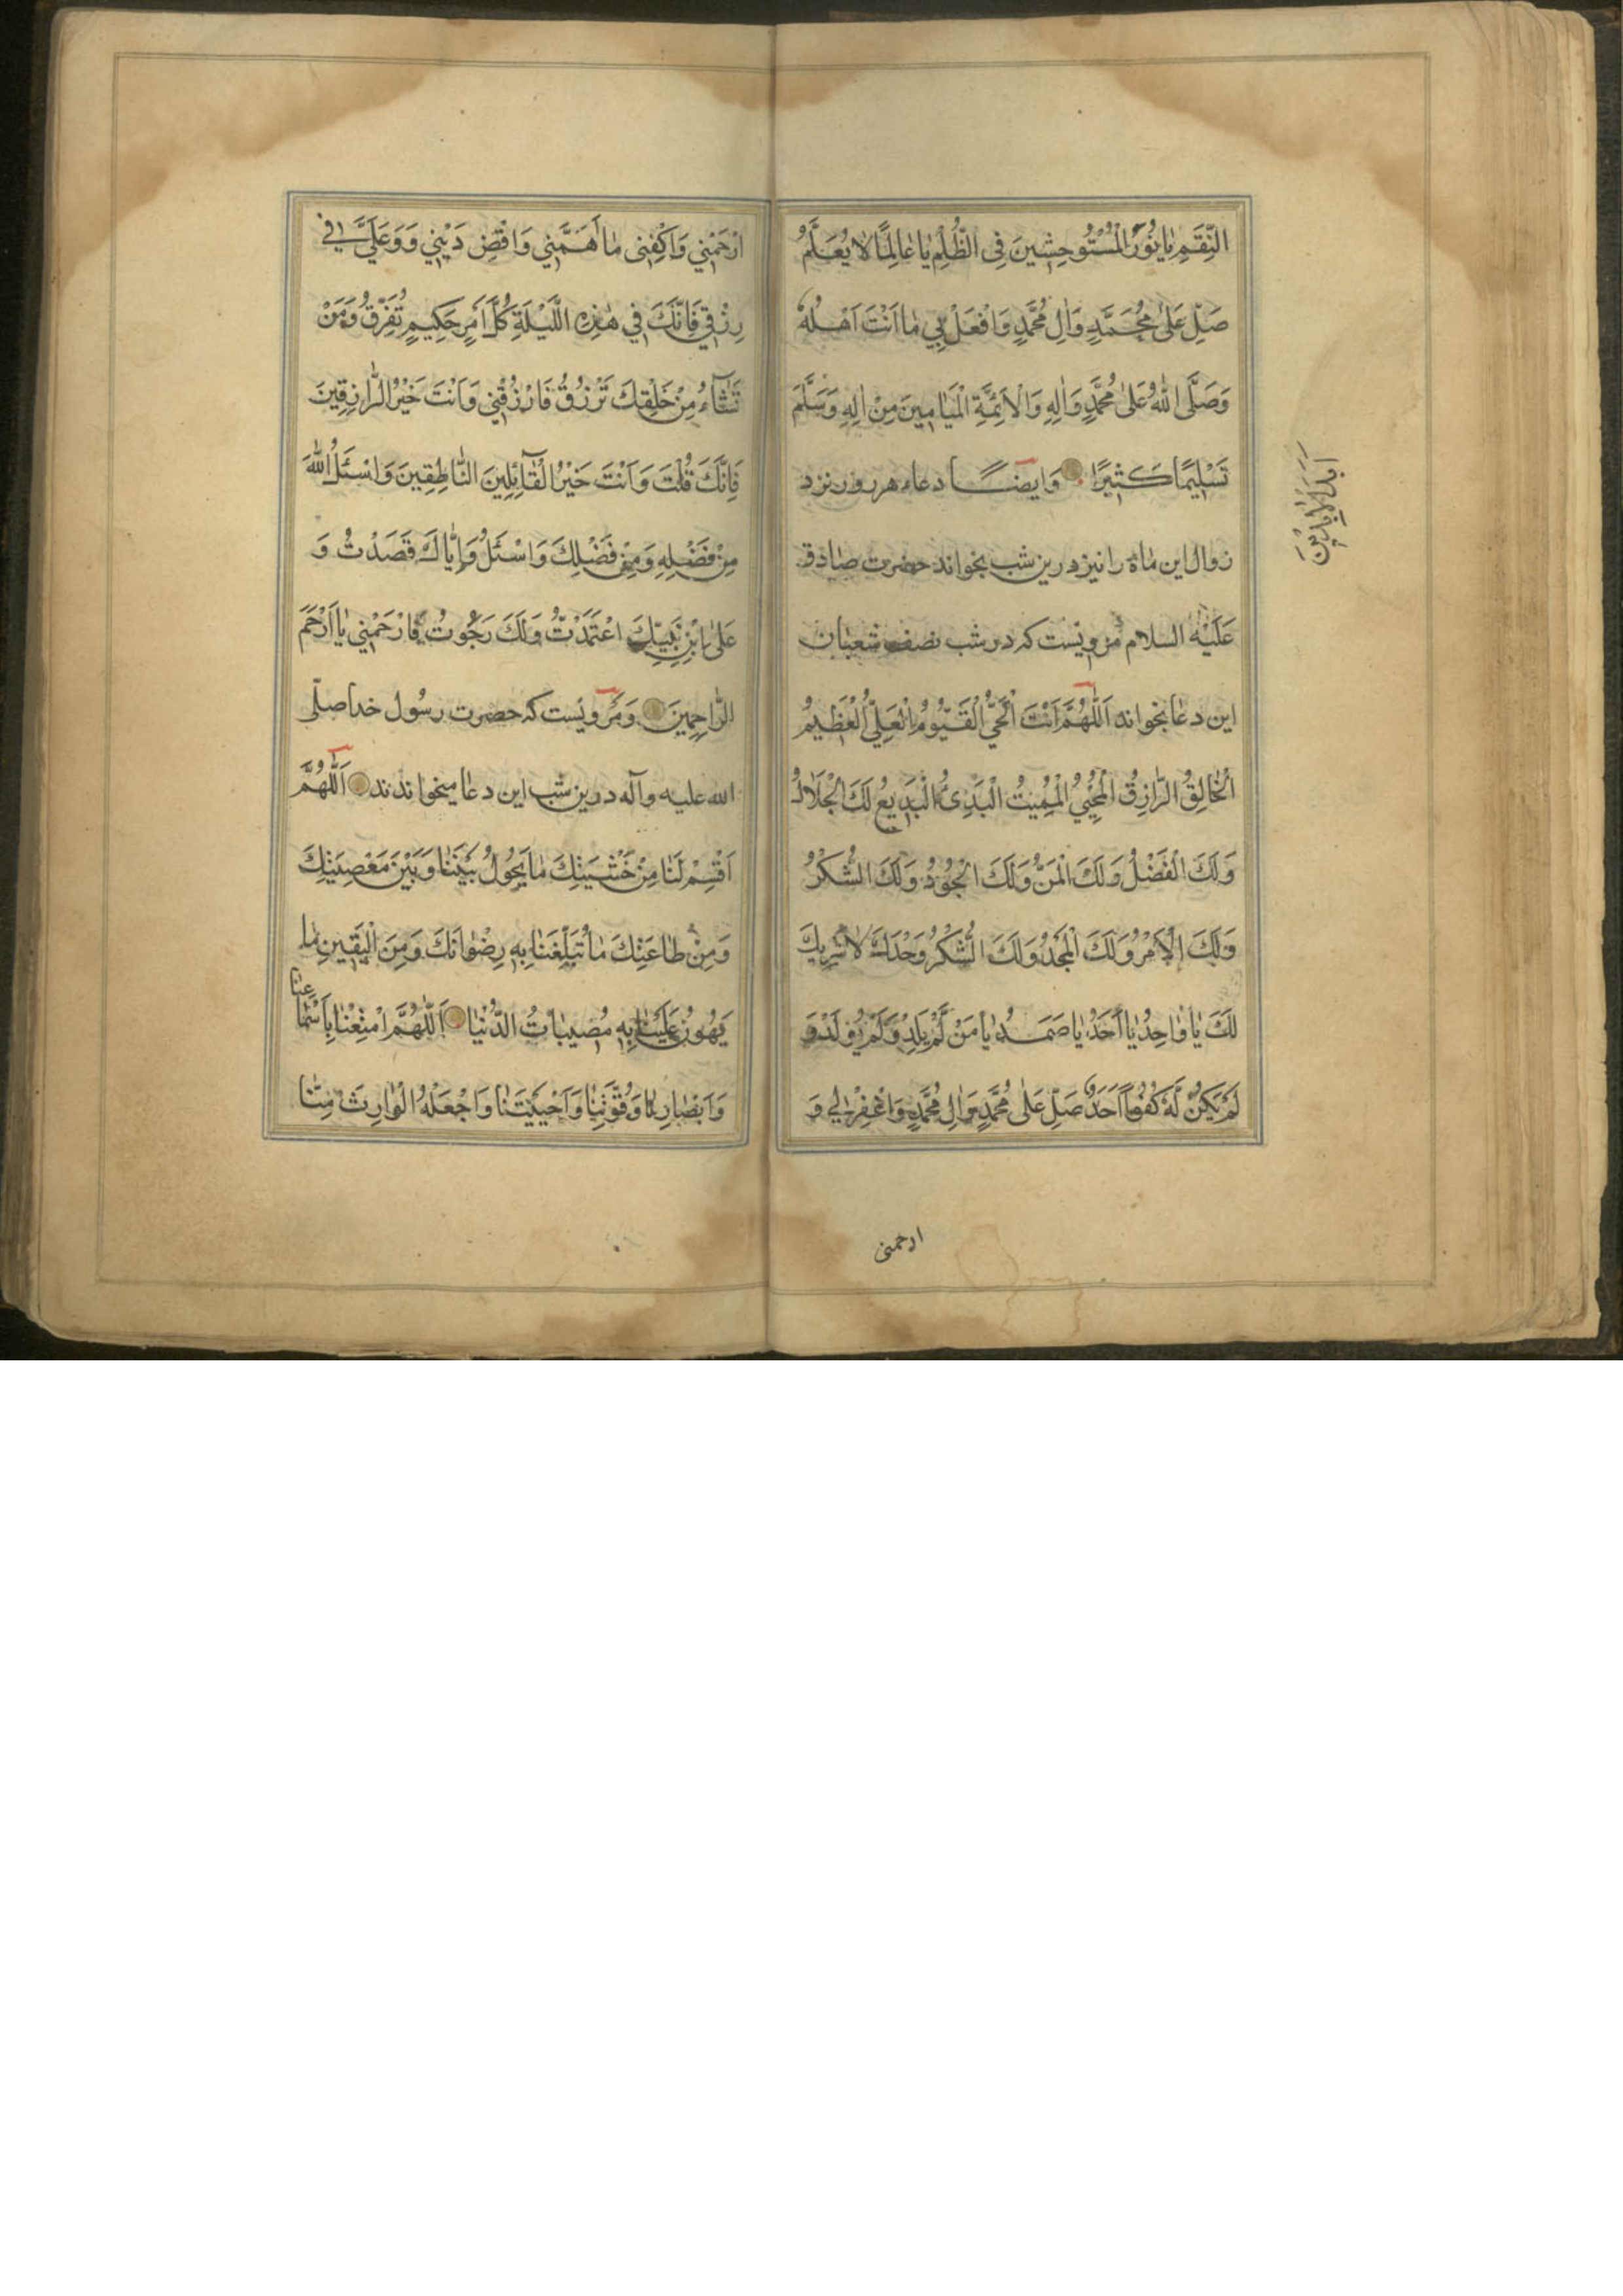 النِّقَمِ يَا نُورَ الْمُسْتَوْحِشِينَ فِى الظُّلَمِ يَا عَالِمًا لَا يُعَلَّمُ
صَلِّ عَلَىٰ مُحَمَّدٍ وَاٰلِ مُحَمَّدٍ وَافْعَلْ بِي مَا اَنْتَ اَهْلُهُ
وَصَلَّى اللهُ عَلَىٰ مُحَمَّدٍ وَاٰلِهِ وَالْاَئِمَّةِ الْمَيَامِينَ مِنْ اٰلِهِ وَسَلَّمَ
تَسْلِيمًا كَثِيرًا وَايضًا دعاء هر روز نزد
زوال این ماه را نیز درین شب بخواند حضرت صادق
عَلَيْهِ السلام مرویست که در شب نصف شعبان
این دعا بخواند اَللّٰهُمَّ اَنْتَ الْحَيُّ الْقَيُّومُ الْعَلِيُّ الْعَظِيمُ
الْخَالِقُ الرَّازِقُ الْمُحْيِي الْمُمِيتُ الْبَدِىءُ الْبَدِيعُ لَكَ الْجَلَالُ
وَلَكَ الْفَضْلُ وَلَكَ الْمَنُّ وَلَكَ الْجُودُ وَلَكَ الشُّكْرُ
وَلَكَ الْاَمْرُ وَلَكَ الْمَجْدُ وَلَكَ الشُّكْرُ وَحْدَكَ لَا شَرِيكَ
لَكَ يَا وَاحِدُ يَا اَحَدُ يَا صَمَدُ يَا مَنْ لَمْ يَلِدْ وَلَمْ يُولَدْ وَ
لَمْ يَكُنْ لَهُ كُفُوًا اَحَدٌ صَلِّ عَلَىٰ مُحَمَّدٍ وَاٰلِ مُحَمَّدٍ وَاغْفِرْ لِي وَ
ارحمنی
اَبَدَ الْاٰبِدِينَ
ارْحَمْنِي وَاكْفِنِى مَا اَهَمَّنِي وَاقْضِ دَيْنِي وَوَ عَلَيَّ فِي
رِزْقِي فَاِنَّكَ فِي هٰذِهِ اللَّيْلَةِ كُلَّ اَمْرٍ حَكِيمٍ تُفَرِّقُ وَمَنْ
تَشَاءُ مِنْ خَلْقِكَ تَرْزُقُ فَارْزُقْنِي وَاَنْتَ خَيْرُ الرَّازِقِينَ
فَاِنَّكَ قُلْتَ وَاَنْتَ خَيْرُ الْقَائِلِينَ النَّاطِقِينَ وَاسْئَلُوا اللهَ
مِنْ فَضْلِهِ وَمِنْ فَضْلِكَ وَاسْئَلُ وَاِيَّاكَ قَصَدْتُ وَ
عَلَى ابْنِ نَبِيِّكَ اعْتَمَدْتُ وَلَكَ رَجَوْتُ فَارْحَمْنِي يَا اَرْحَمَ
الرَّاحِمِينَ وَمرویست که حضرت رسول خدا صلّى
الله عليه وآله درین شب این دعا میخواندند اَللّٰهُمَّ
اَقْسِمْ لَنَا مِنْ خَشْيَتِكَ مَا يَحُولُ بَيْنَنَا وَبَيْنَ مَعْصِيَتِكَ
وَمِنْ طَاعَتِكَ مَا تُبَلِّغُنَا بِهِ رِضْوَانَكَ وَمِنَ الْيَقِينِ مَا
يَهُونُ عَلَيْنَا بِهِ مُصِيبَاتُ الدُّنْيَا اَللّٰهُمَّ امْتِعْنَا بِاَسْمَاعِنَا
وَاَبْصَارِنَا وَقُوَّتِنَا وَاَحْيَيْتَنَا وَاجْعَلْهُ الْوَارِثَ مِنَّا